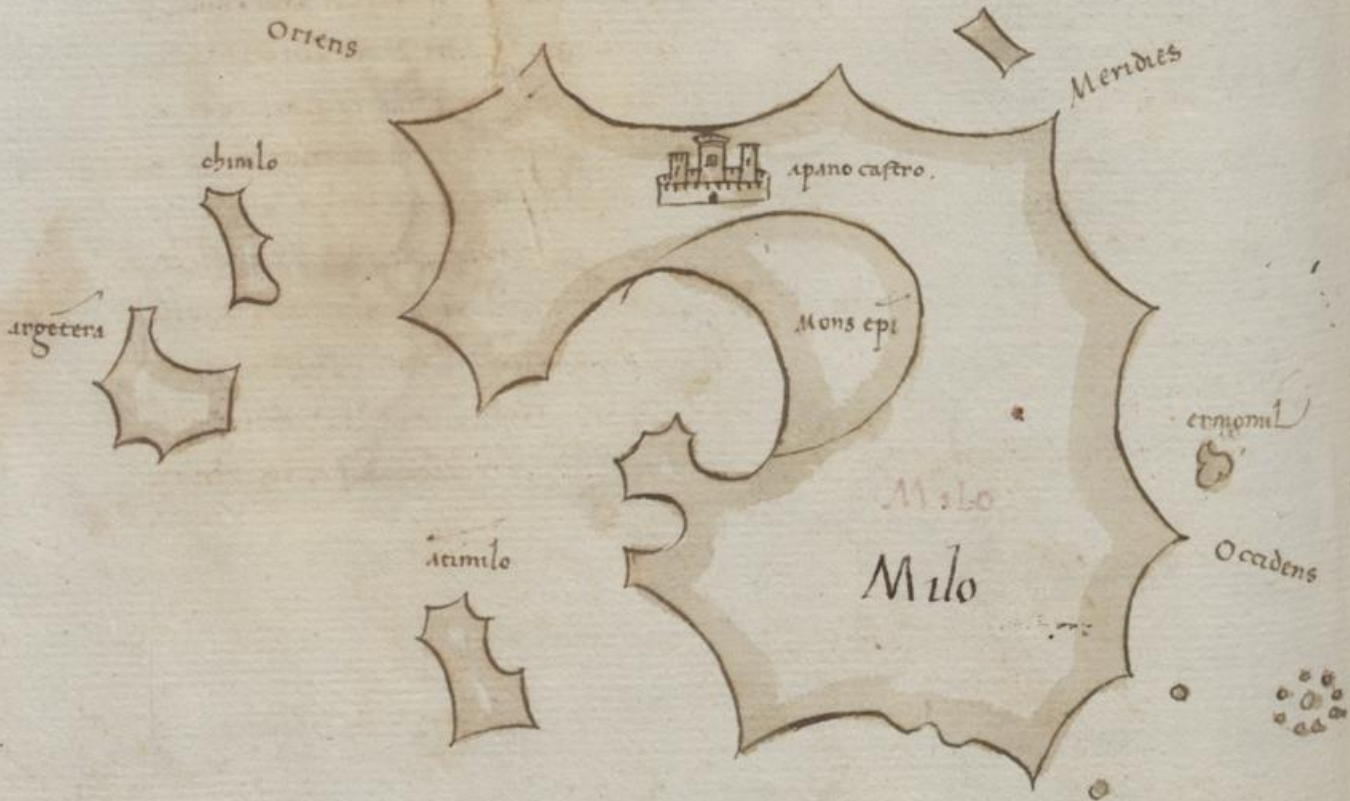 Oriens
Meridies
chimlo
apano castro.
argētera
Mons epī
ermomil
Milo
acimilo
Occidens
Milo